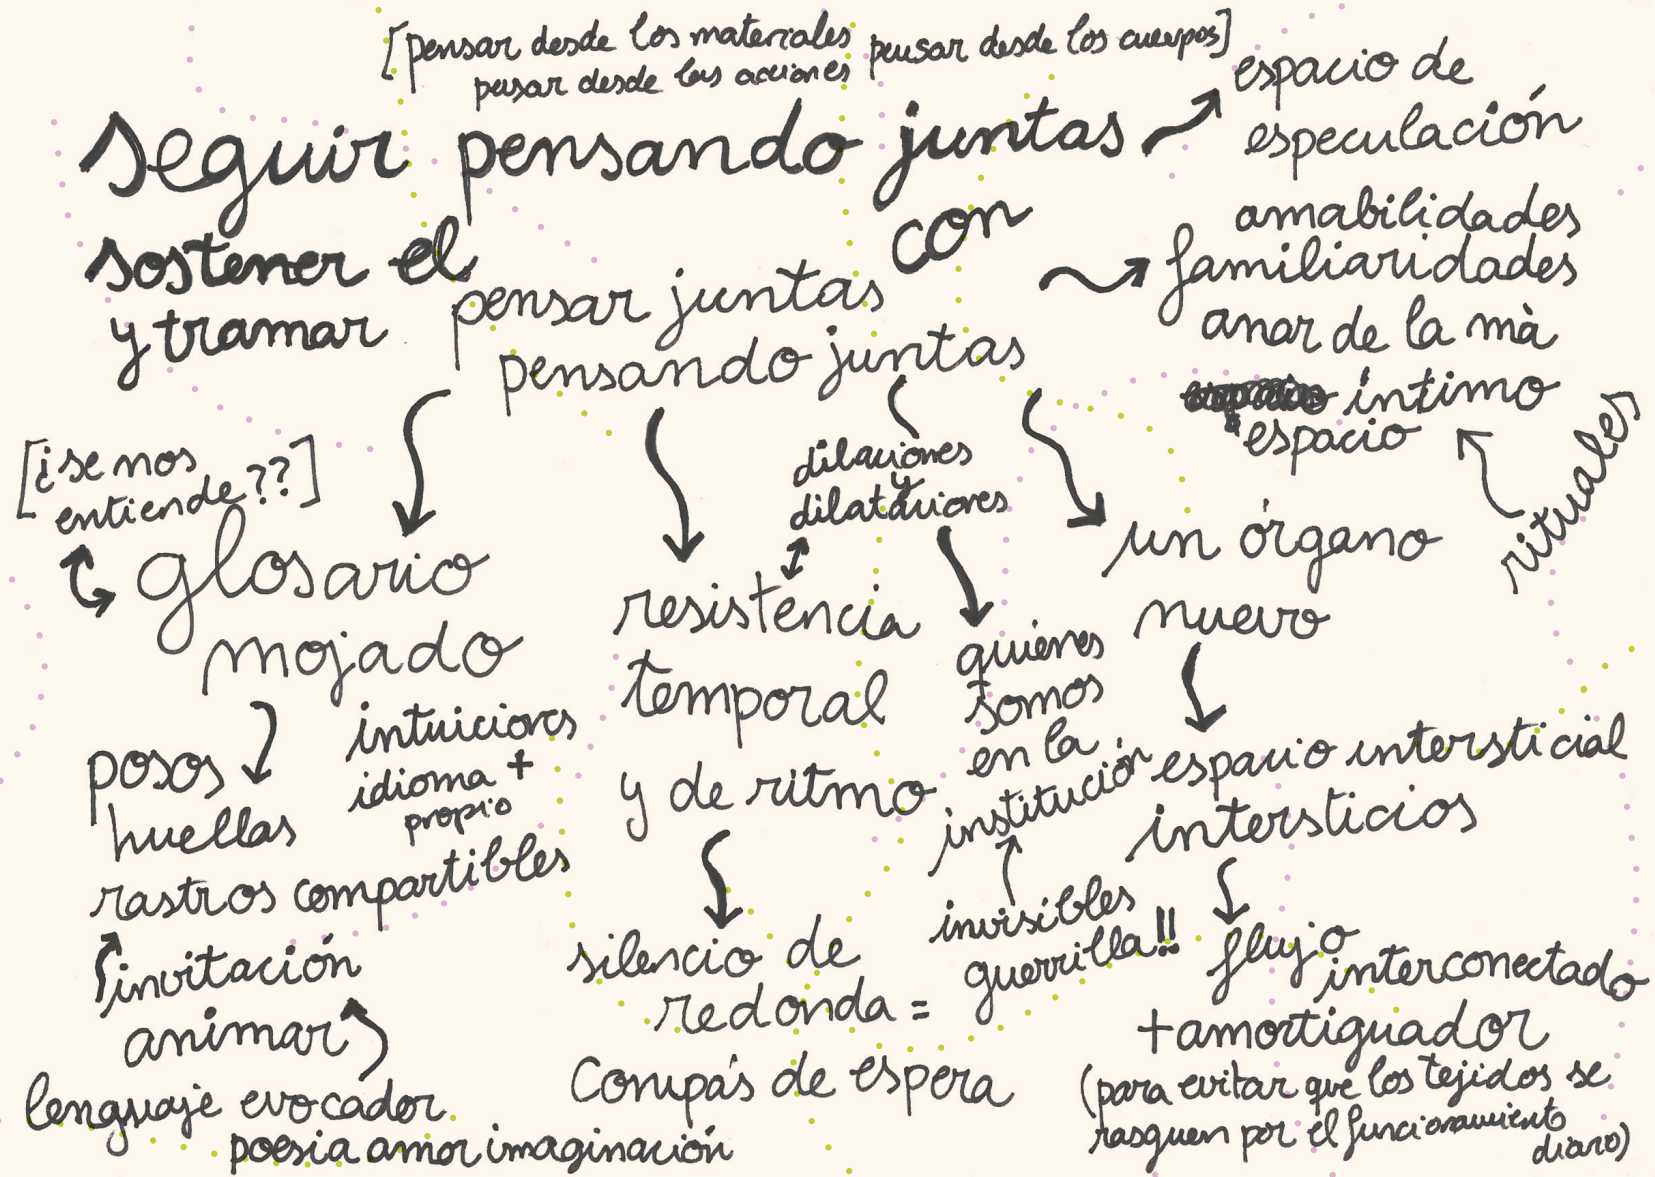 [pensar desde los materiales pensar desde los cuerpos]
pensar desde las acciones
seguir pensando juntas
con
sostener el
pensar juntas
y tramar
pensando juntas
espacio de
especulación
amabilidades
familiaridades
anar de la mà
íntimo
espacio
rituales
[¿se nos
entiende??]
glosario
mojado
posos
huellas
rastros compartibles
intuiciones
idioma +
propio
invitación
animar
lenguaje evocador
poesia amor imaginación
dilaciones
y
dilataciones
resistencia
temporal
y de ritmo
silencio de
redonda =
Compás de espera
quiénes
somos
en la
institución
invisibles
guerrilla!!
un órgano
nuevo
espacio intersticial
intersticios
flujo
interconectado
+ amortiguador
(para evitar que los tejidos se
rasguen por el funcionamiento
diario)